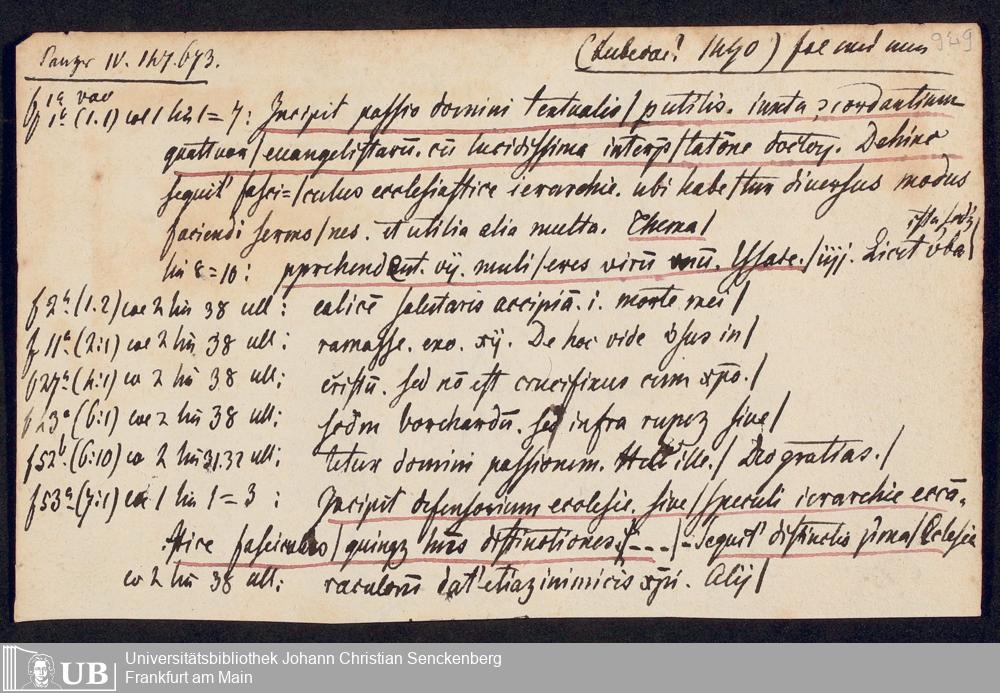 Panzer IV. 147.673.
(Lubecae? 1490) fol min num 949
f 1a vac
f 1b (1.1) col 1 lin 1=7: Incipit passio domini textualis/ putilis. iuxta ɔcordantium
quattuor/ euangelistarū. cū lucidissima interp/tatōne doctoꝝ. Dehinc
sequit' fasci=/culus ecclesiastice ierarchie. ubi habe/tur diuersus modus
faciendi sermo/nes. et utilia alia multa. Thema/
lin 8=10: pprehendent. vij. muli/eres virū unū. Ysaie./iiij. Licet vba/
f 2a (1.2) col 2 lin 38 ult: calicē salutaris accipiā. i. morte mei/
f 11a (2:1) col 2 lin 38 ult: ramasse. exo. xij. De hoc vide in/
f 27a (4:1) co 2 lin 38 ult: sed nō est crucifixus cum xp̄o./
(6:1) col 2 lin 38 ult: borchardū. sed infra sive/
f 52b (6:10) co 2 lin 31.32 ult: tetur domini passionem. ille./ Deo gratias./
f 53a (7:1) col 1 lin 1=3: Incipit defensorium ecclesie. sive/ speculi ierarchie eccā=
stice fasciculus/ quinqz hn̄s distinctiones/ ---/ =Sequit' distinctio p̄ma/ Eclesia
co 2 lin 38 ult: dat' etiaz inimicis xp̄i. Alij/
UB
Universitätsbibliothek Johann Christian Senckenberg
Frankfurt am Main